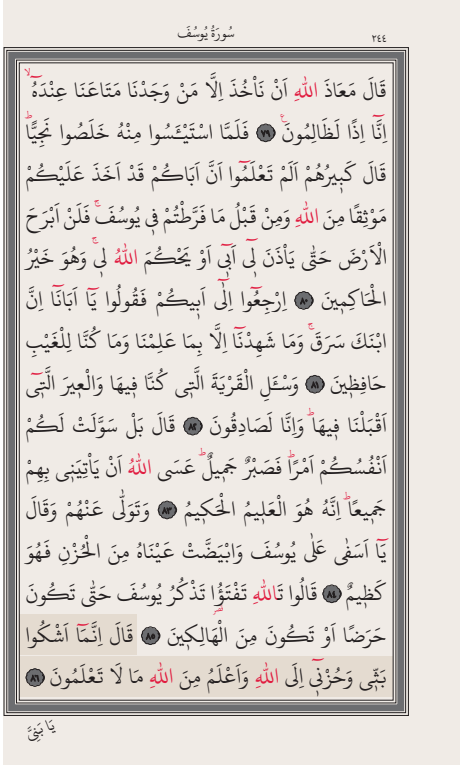 سُورَةُ يُوسُفَ
٢٤٤
قَالَ مَعَاذَ اللّٰهِ اَنْ نَأْخُذَ اِلَّا مَنْ وَجَدْنَا مَتَاعَنَا عِنْدَهُٓۙ
اِنَّٓا اِذًا لَظَالِمُونَ۟ ﴿٧٩﴾ فَلَمَّا اسْتَيْـَٔسُوا مِنْهُ خَلَصُوا نَجِيًّاۜ
قَالَ كَب۪يرُهُمْ اَلَمْ تَعْلَمُٓوا اَنَّ اَبَاكُمْ قَدْ اَخَذَ عَلَيْكُمْ
مَوْثِقًا مِنَ اللّٰهِ وَمِنْ قَبْلُ مَا فَرَّطْتُمْ ف۪ي يُوسُفَۚ فَلَنْ اَبْرَحَ
الْاَرْضَ حَتّٰى يَأْذَنَ ل۪ٓي اَب۪ٓي اَوْ يَحْكُمَ اللّٰهُ ل۪يۚ وَهُوَ خَيْرُ
الْحَاكِم۪ينَ ﴿٨٠﴾ اِرْجِعُٓوا اِلٰٓى اَب۪يكُمْ فَقُولُوا يَٓا اَبَانَٓا اِنَّ
ابْنَكَ سَرَقَۚ وَمَا شَهِدْنَٓا اِلَّا بِمَا عَلِمْنَا وَمَا كُنَّا لِلْغَيْبِ
حَافِظ۪ينَ ﴿٨١﴾ وَسْـَٔلِ الْقَرْيَةَ الَّت۪ي كُنَّا ف۪يهَا وَالْع۪يرَ الَّت۪ٓي
اَقْبَلْنَا ف۪يهَاۜ وَاِنَّا لَصَادِقُونَ ﴿٨٢﴾ قَالَ بَلْ سَوَّلَتْ لَكُمْ
اَنْفُسُكُمْ اَمْرًاۜ فَصَبْرٌ جَم۪يلٌۜ عَسَى اللّٰهُ اَنْ يَأْتِيَن۪ي بِهِمْ
جَم۪يعًاۜ اِنَّهُ هُوَ الْعَل۪يمُ الْحَك۪يمُ ﴿٨٣﴾ وَتَوَلّٰى عَنْهُمْ وَقَالَ
يَٓا اَسَفٰى عَلٰى يُوسُفَ وَابْيَضَّتْ عَيْنَاهُ مِنَ الْحُزْنِ فَهُوَ
كَظ۪يمٌ ﴿٨٤﴾ قَالُوا تَاللّٰهِ تَفْتَؤُ۬ا تَذْكُرُ يُوسُفَ حَتّٰى تَكُونَ
حَرَضًا اَوْ تَكُونَ مِنَ الْهَالِك۪ينَ ﴿٨٥﴾ قَالَ اِنَّمَٓا اَشْكُوا
بَثّ۪ي وَحُزْن۪ٓي اِلَى اللّٰهِ وَاَعْلَمُ مِنَ اللّٰهِ مَا لَا تَعْلَمُونَ ﴿٨٦﴾
يَا بَنِيَّ